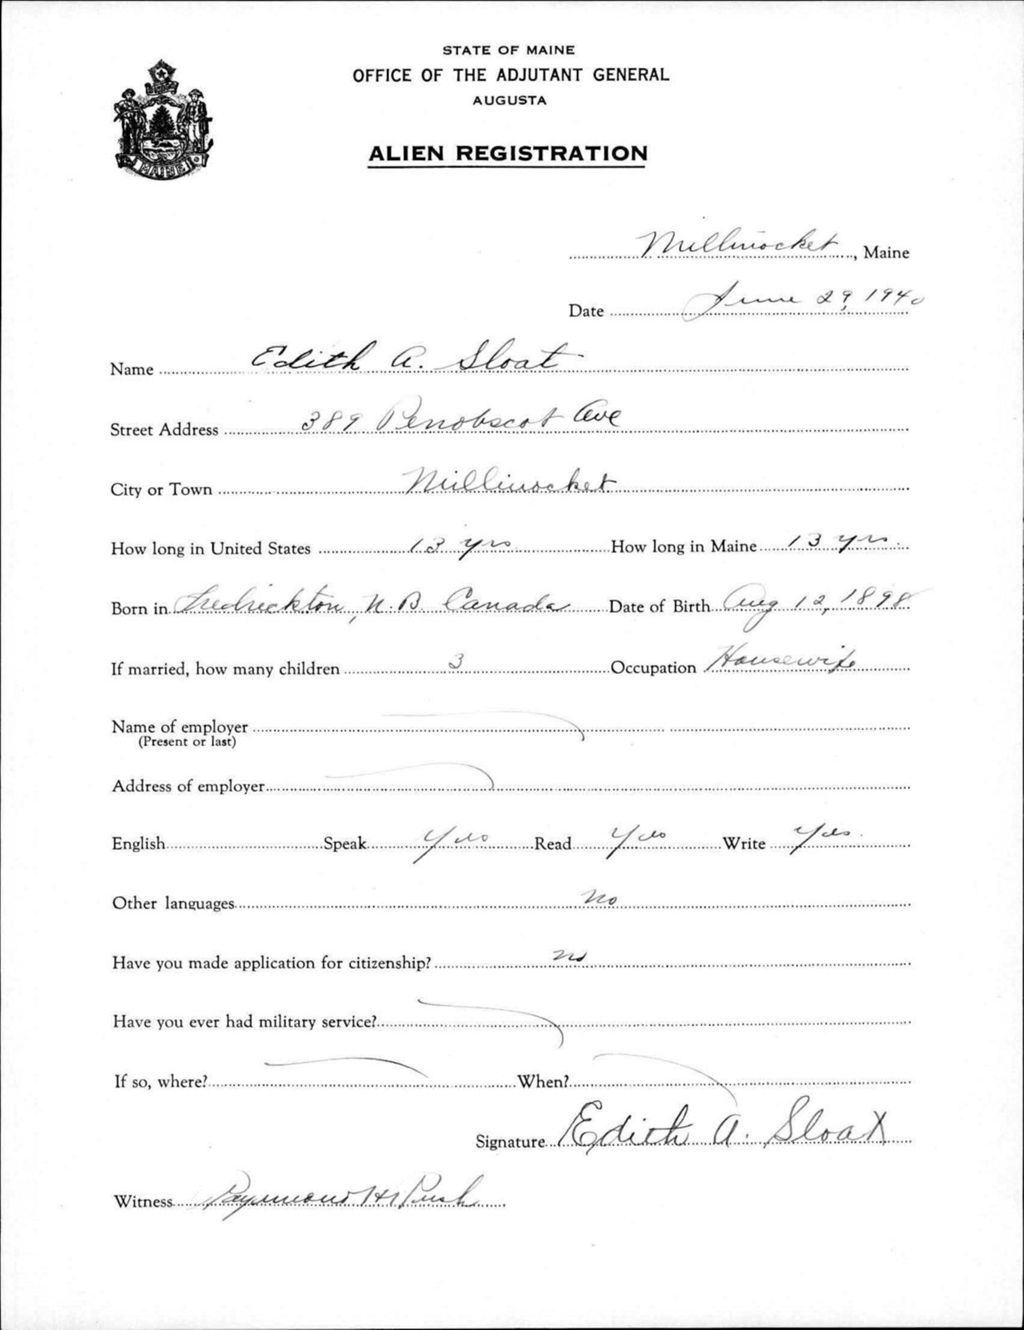 STATE OF MAINE
OFFICE OF THE ADJUTANT GENERAL
AUGUSTA
ALIEN REGISTRATION
MAINE
Millinocket, Maine
Date June 29, 1940
Name Edith A. Sloat
Street Address 389 Penobscot Ave
City or Town Millinocket
How long in United States 13 yrs How long in Maine 13 yrs.
Born in Fredrickton, N.B. Canada Date of Birth Aug 12, 1898
If married, how many children 3 Occupation Housewife
Name of employer
(Present or last)
Address of employer
English Speak Yes Read Yes Write Yes.
Other languages No
Have you made application for citizenship? no
Have you ever had military service?
If so, where? When?
Signature Edith A. Sloat
Witness Raymond H Rush